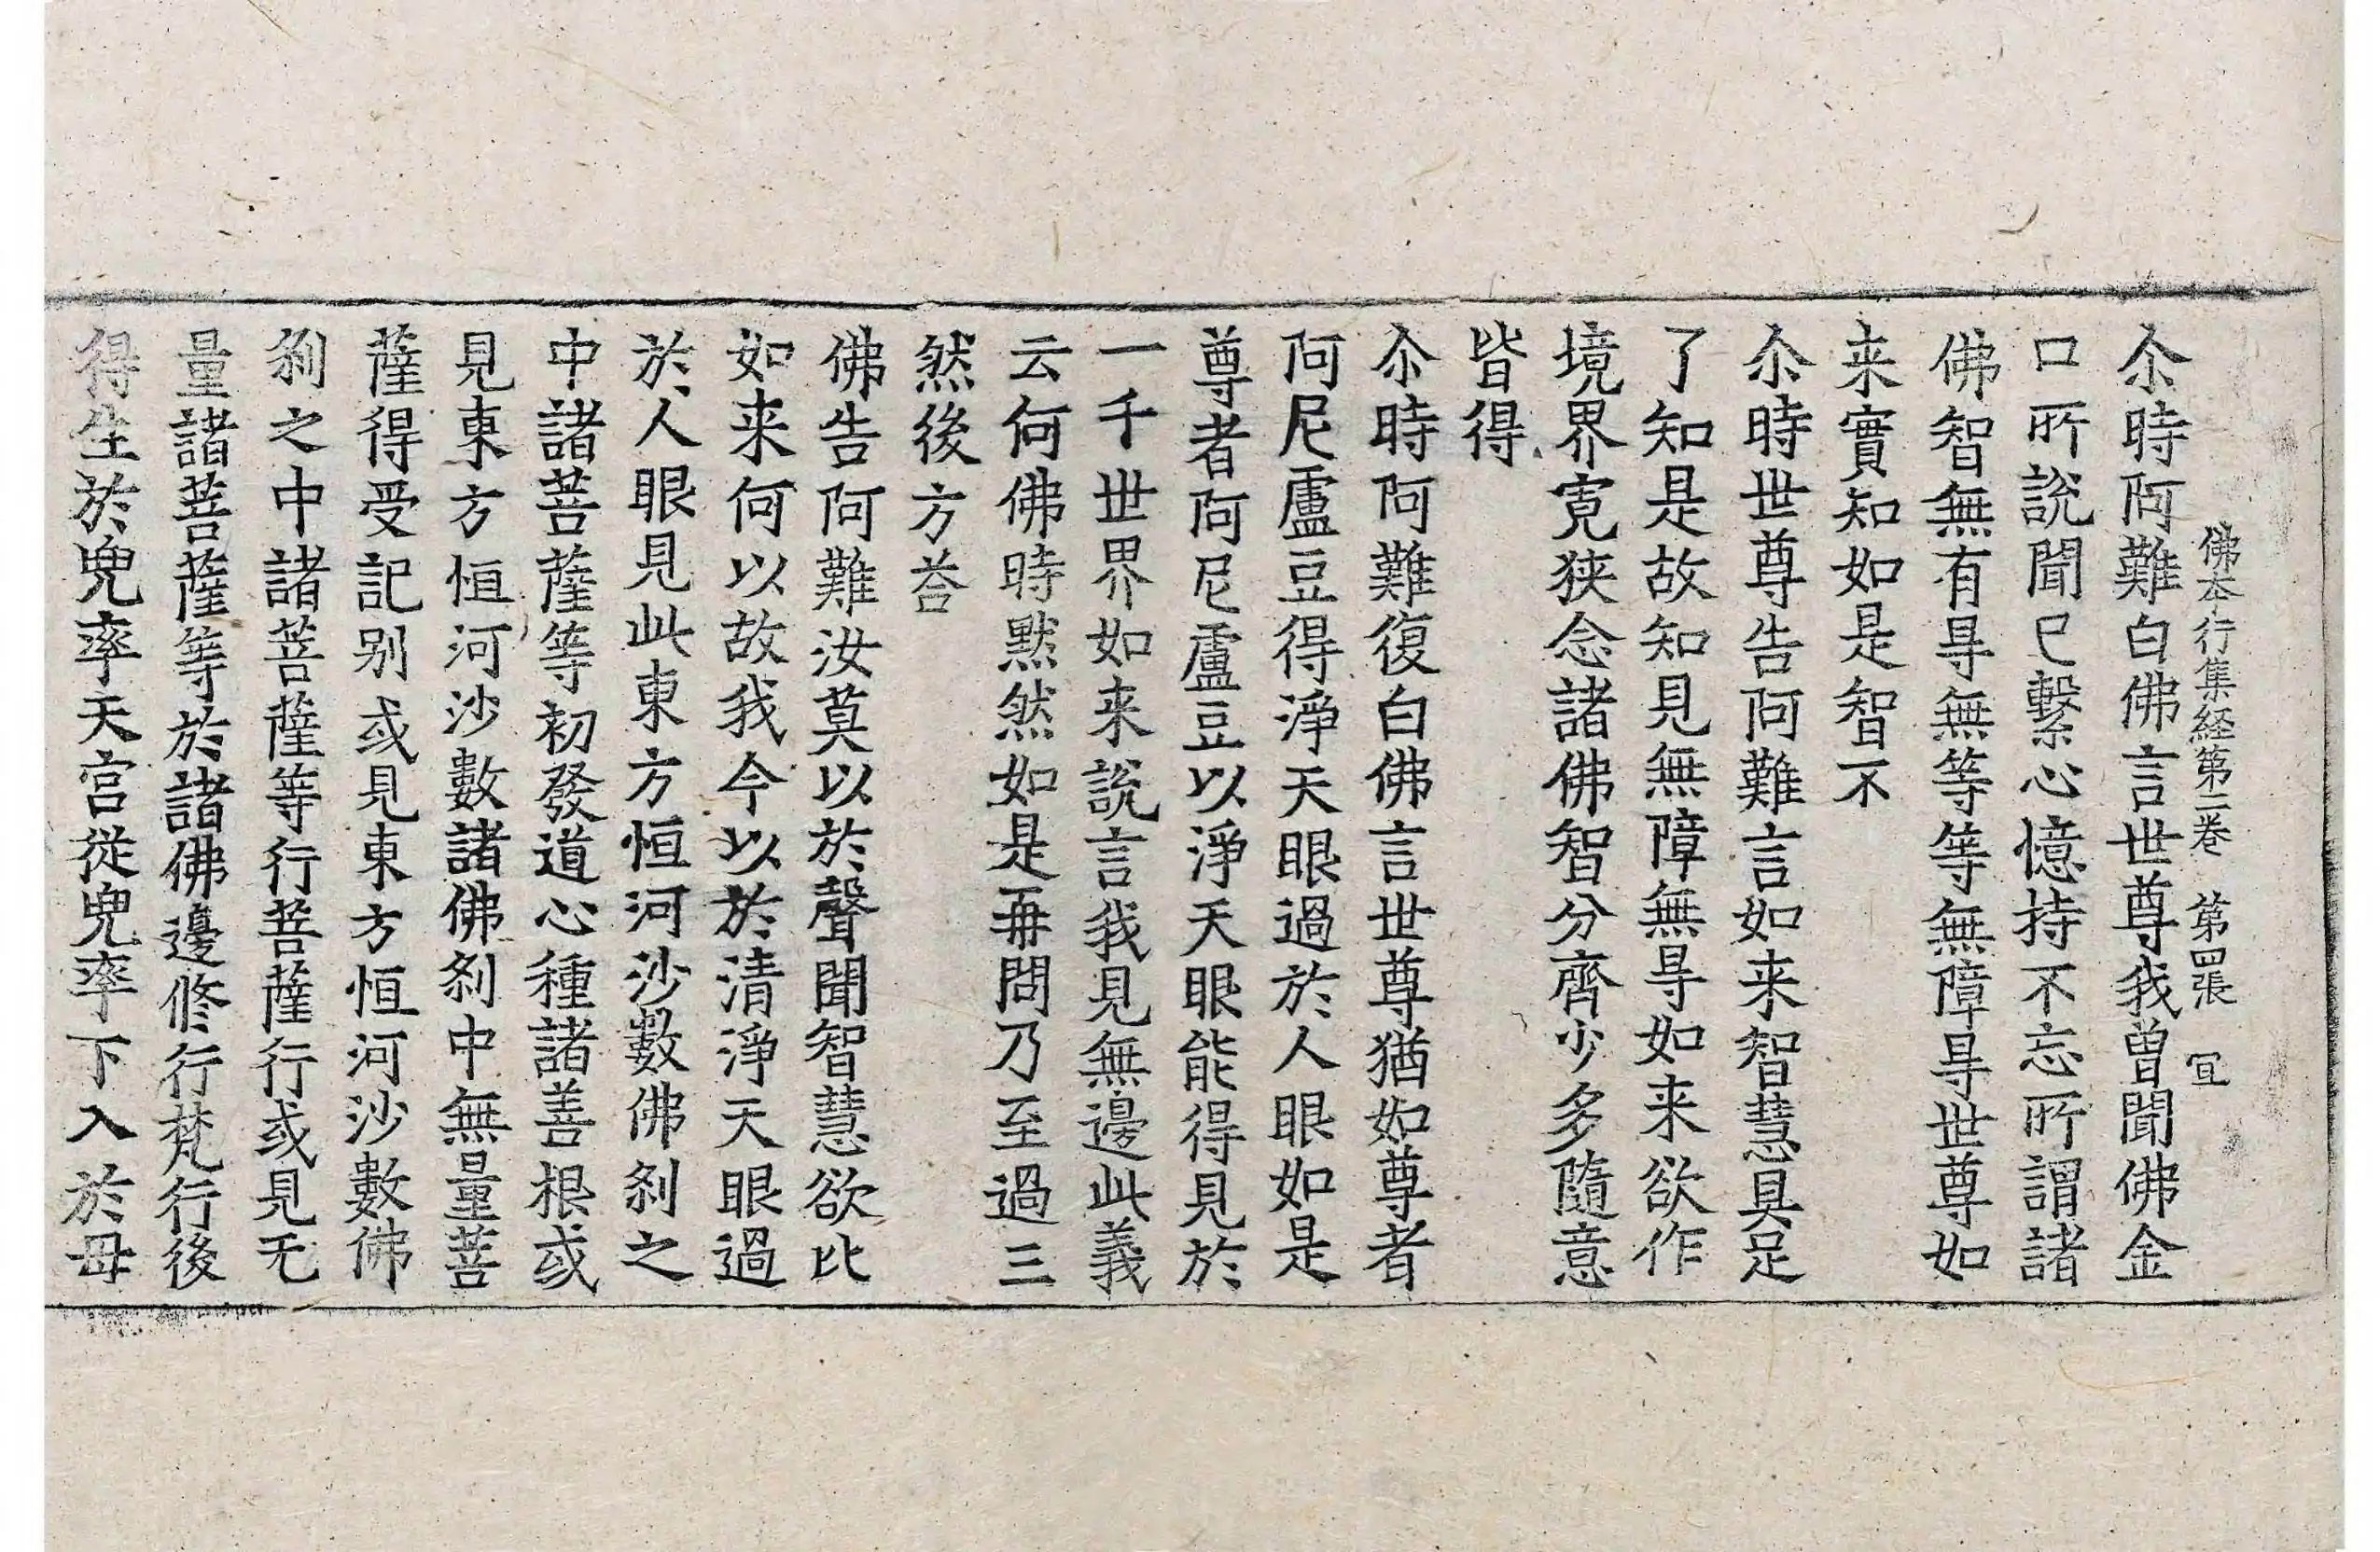 佛本行集経第二巻　第四張　冝
尒時阿難白佛言世尊我曽聞佛金
口所說聞已繫心憶持不忘所謂諸
佛智無有㝵無等等等無障㝵世尊如
来實知如是智不
尒時世尊告阿難言如来智慧具足
了知是故知見無障無㝵如来欲作
境界寛狹念諸佛智分齊少多隨意
皆得
尒時阿難復白佛言世尊猶如尊者
阿尼盧豆得淨天眼過於人眼如是
尊者阿尼盧豆以淨天眼能得見於
一千世界如来說言我見無邊此義
云何佛時黙然如是再問乃至過三
然後方荅
佛告阿難汝莫以於聲聞智慧欲比
如来何以故我今以於清淨天眼過
於人眼見此東方恒河沙數佛刹之
中諸菩薩等初發道心種諸善根或
見東方恒河沙數諸佛刹中無量菩
薩得受記别或見東方恒河沙數佛
刹之中諸菩薩等行菩薩行或見无
量諸菩薩等於諸佛邊修行梵行後
得生於兜率天宫從兜率下入於母